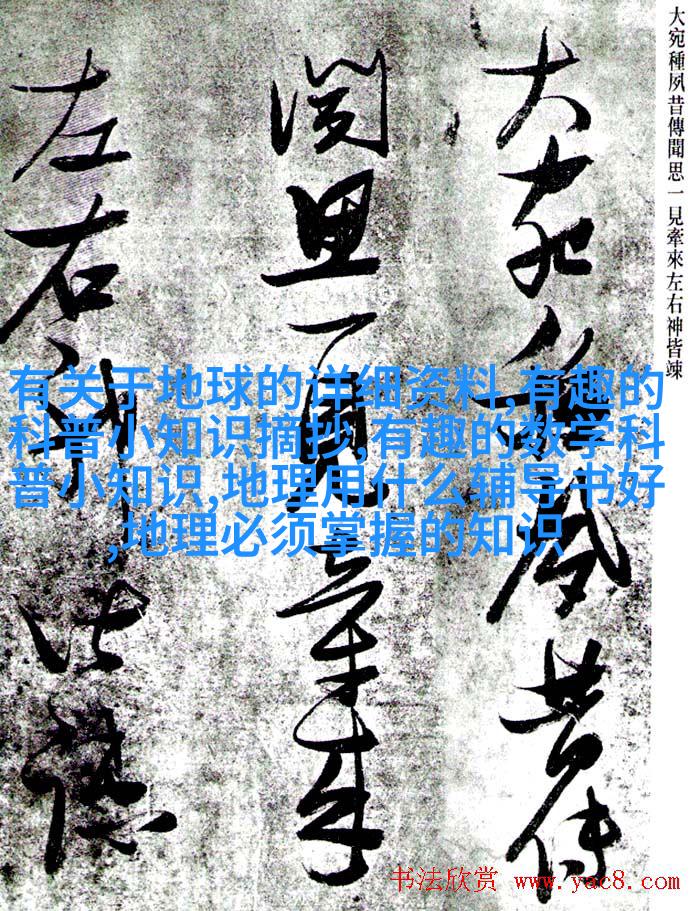 大宛種夙昔傳聞思一見牽來左右神皆竦
大宛種夙昔傳
聞思一見牽來
左右神皆竦
有关于地球的详细资料,有趣的
科普小知识摘抄,有趣的数学科
普小知识,地理用什么辅导书好
,地理必须掌握的知识
书法欣赏 www.yac8.com